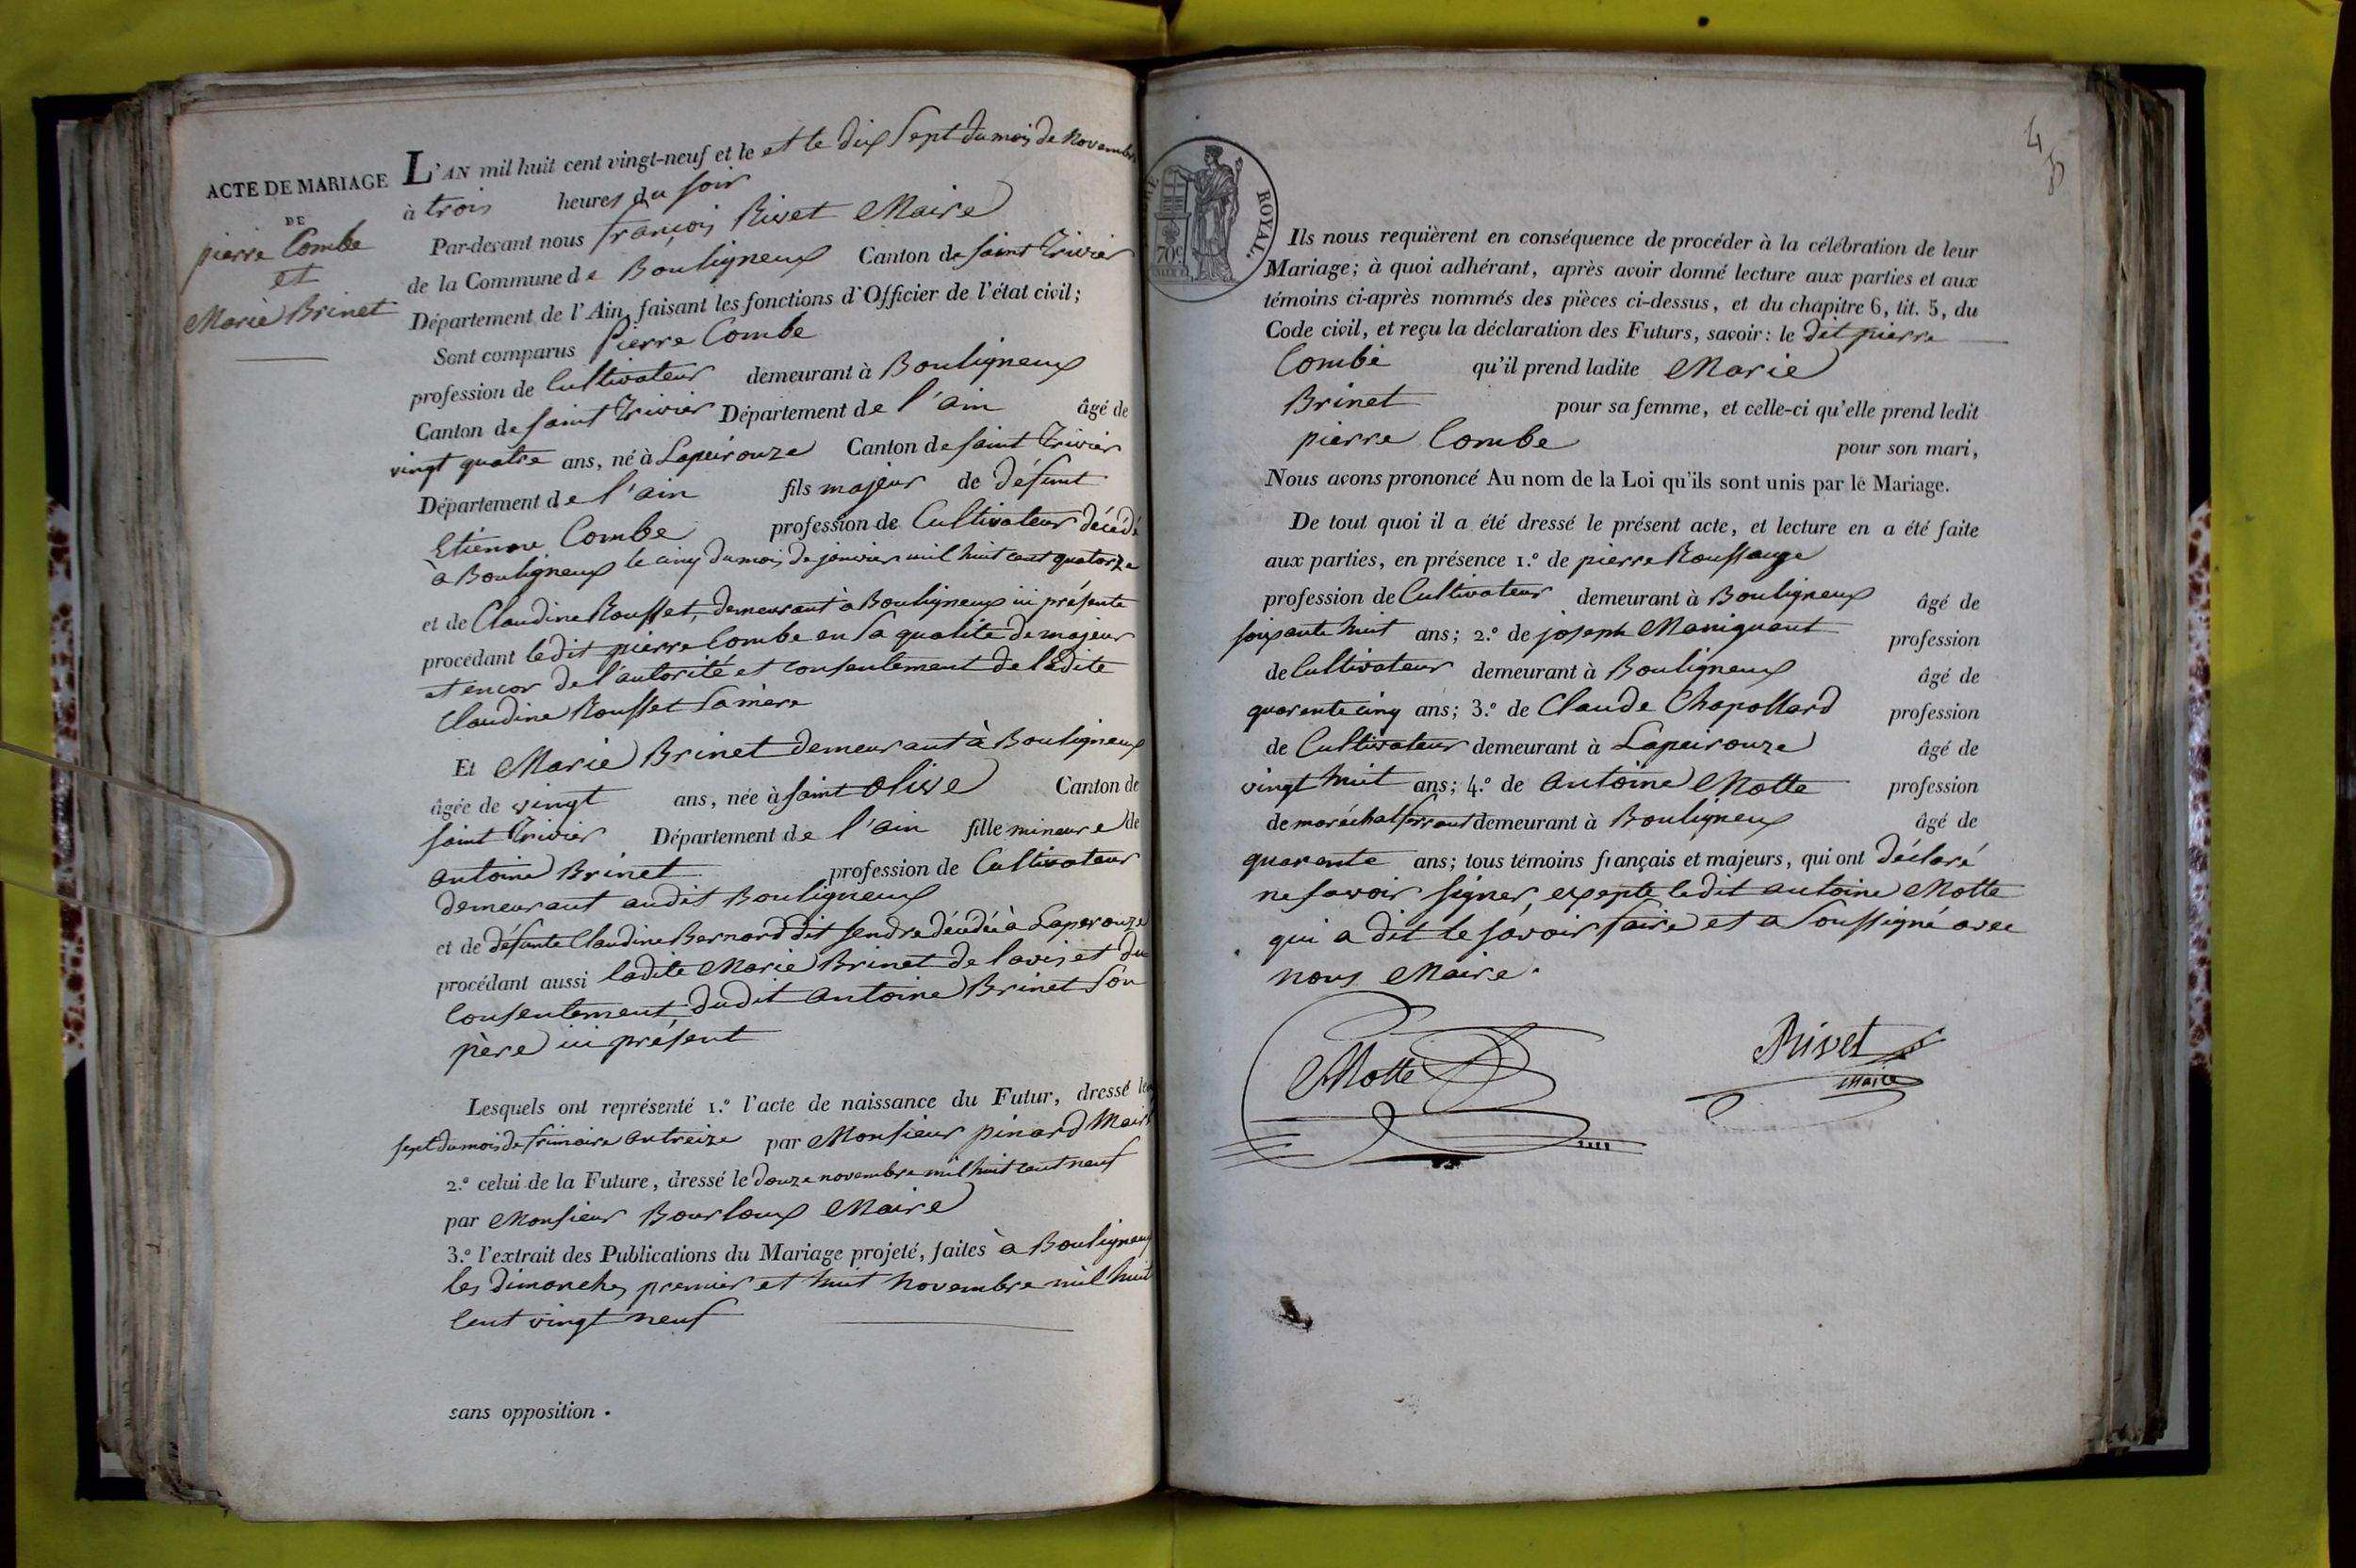 ACTE DE MARIAGE
DE
pierre Combe
et
Marie Brinet
L'AN mil huit cent vingt-neuf et le et le dix sept du mois de Novembre
à trois heures du soir
Par-devant nous françois Rivet Maire
de la Commune de Bouligneux Canton de saint Trivier
Département de l'Ain, faisant les fonctions d'Officier de l'état civil;
Sont comparus Pierre Combe
profession de Cultivateur demeurant à Bouligneux
Canton de saint Trivier Département de l'ain âgé de
vingt quatre ans, né à Lapeirouze Canton de saint Trivier
Département de l'ain fils majeur de défunt
Etienne Combe profession de Cultivateur décédé
à Bouligneux le cinq du mois de janvier mil huit cent quatorze
et de Claudine Rousset, demeurant à Bouligneux ici présente
procédant ledit pierre Combe en sa qualité de majeur
et encor de l'autorité et consentement de ladite
Claudine Rousset sa mère
Et Marie Brinet demeurant à Bouligneux
âgée de vingt ans, née à saint olive Canton de
saint Trivier Département de l'ain fille mineure de
antoine Brinet profession de Cultivateur
demeurant audit Bouligneux
et de défunte Claudine Bernard dit sendre décédée à Laperouze
procédant aussi ladite Marie Brinet de l'avis et du
Consentement, dudit antoine Brinet son
père ici présent
Lesquels ont représenté 1.º l'acte de naissance du Futur, dressé le
sept du mois de frimaire an treize par Monsieur pinard Maire
2.º celui de la Future, dressé le douze novembre mil huit cent neuf
par Monsieur Bourloux Maire
3.º l'extrait des Publications du Mariage projeté, faites à Bouligneux
les dimanches premier et huit novembre mil huit
Cent vingt neuf
sans opposition.
ROYAL.
70c
Ils nous requièrent en conséquence de procéder à la célébration de leur
Mariage; à quoi adhérant, après avoir donné lecture aux parties et aux
témoins ci-après nommés des pièces ci-dessus, et du chapitre 6, tit. 5, du
Code civil, et reçu la déclaration des Futurs, savoir: le dit pierre
Combe qu'il prend ladite Marie
Brinet pour sa femme, et celle-ci qu'elle prend ledit
pierre Combe pour son mari,
Nous avons prononcé Au nom de la Loi qu'ils sont unis par le Mariage.
De tout quoi il a été dressé le présent acte, et lecture en a été faite
aux parties, en présence 1.º de pierre Roussange
profession de Cultivateur demeurant à Bouligneux âgé de
soixante huit ans; 2.º de joseph Maniquant profession
de Cultivateur demeurant à Bouligneux âgé de
quarente cinq ans; 3.º de Claude Chapollard profession
de Cultivateur demeurant à Lapeirouze âgé de
vingt huit ans; 4.º de antoine Motte profession
de maréchal ferrant demeurant à Bouligneux âgé de
quarente ans; tous témoins français et majeurs, qui ont déclaré
ne savoir signer, expepté ledit antoine Motte
qui a dit le savoir faire et a soussigné avec
nous Maire.
Motte
Rivet
maire